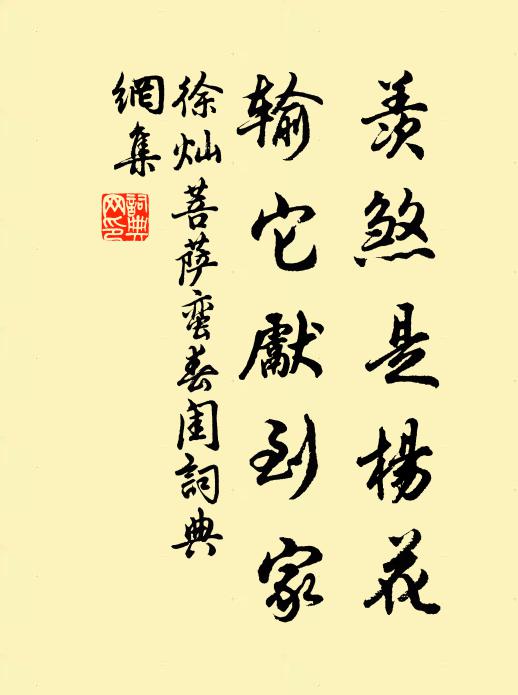 羨煞是楊花
輸它獻到家
徐灿菩萨蛮春闺詞典
網集
詞典
网印